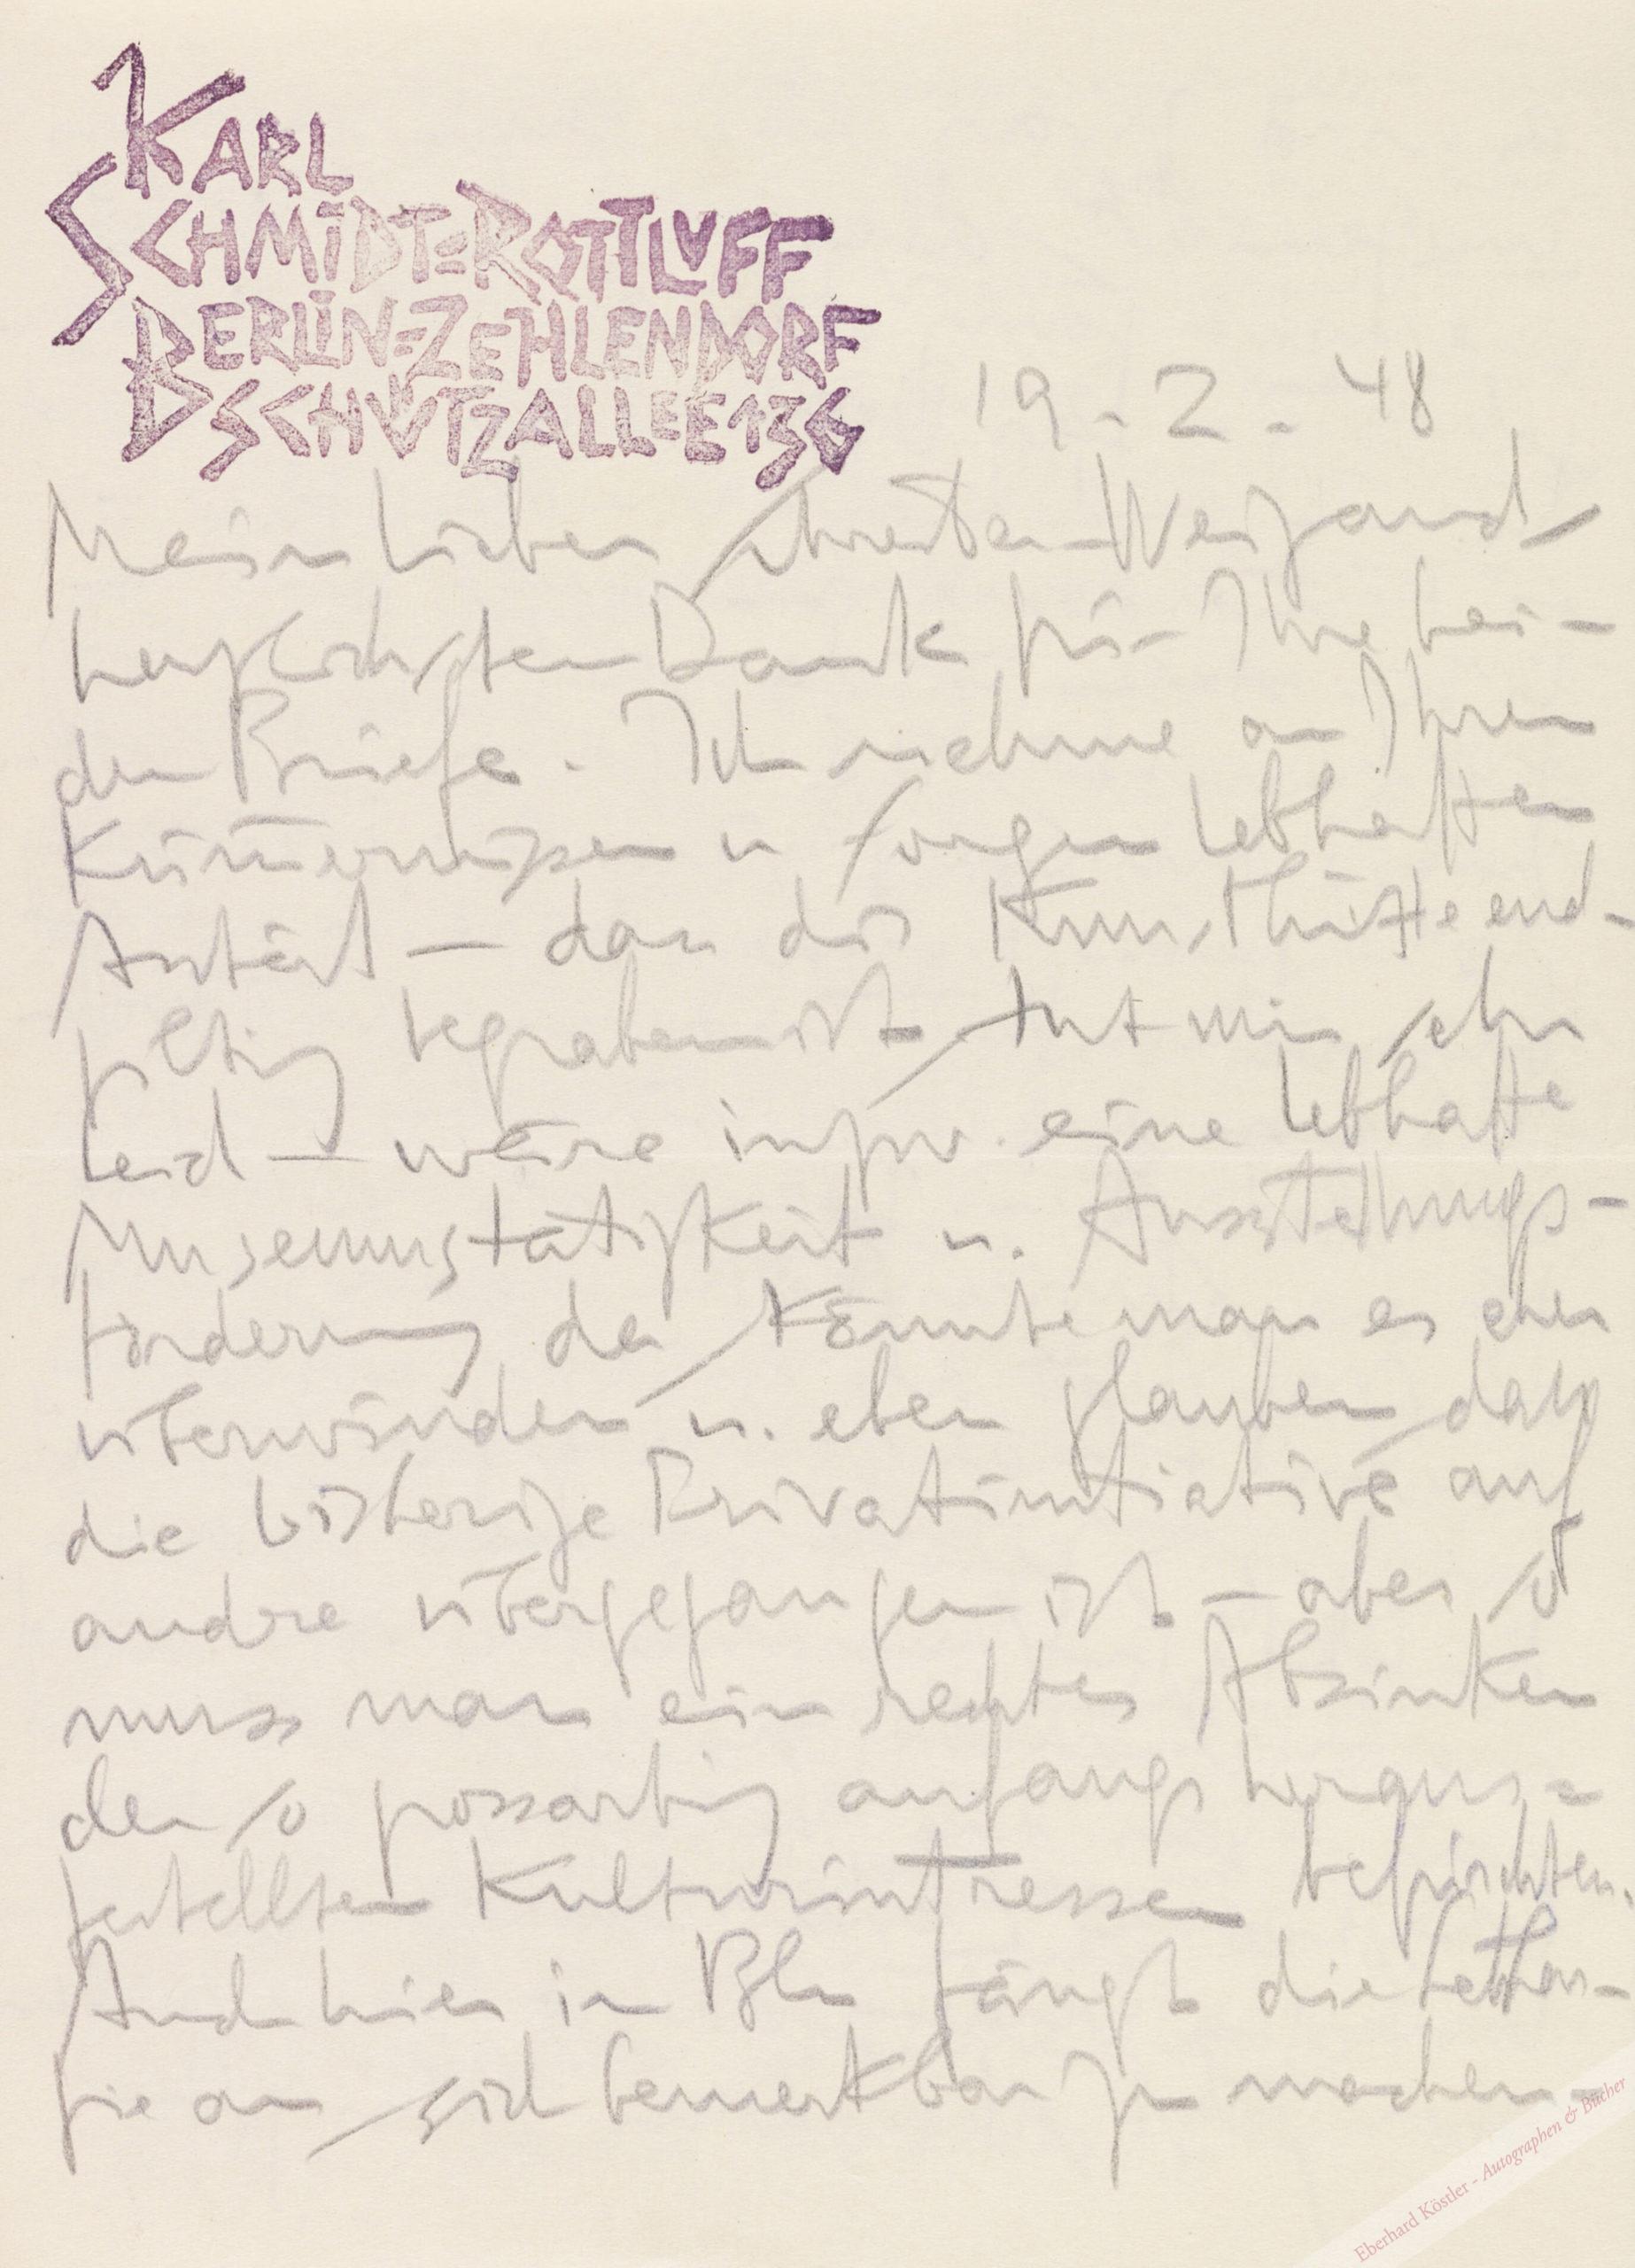 KARL
SCHMIDT=ROTTLUFF
BERLIN=ZEHLENDORF
SCHÜTZALLEE 136
19-2-48
Mein lieber Schreiber-Weigand,
herzlichsten Dank für Ihre bei-
den Briefe. Ich nehme an Ihren
Kümernissen u Sorgen lebhaften
Anteil – dass die Kunsthütte end-
gültig begraben ist, tut mir sehr
leid – wäre irgdw. eine lebhafte
Museumstätigkeit u. Ausstellungs-
förderung da, könnte man es eher
überwinden u. eben glauben, dass
die bisherige Privatinitiative auf
andre übergegangen ist – aber so
muss man ein rechtes Absinken
der so grossartig anfangs heraus-
gestellten Kulturintressen befürchten.
Auch hier in Bln fängt die Lethar-
gie an, sich bemerkbar zu machen –
Eberhard Köstler - Autographen & Bücher